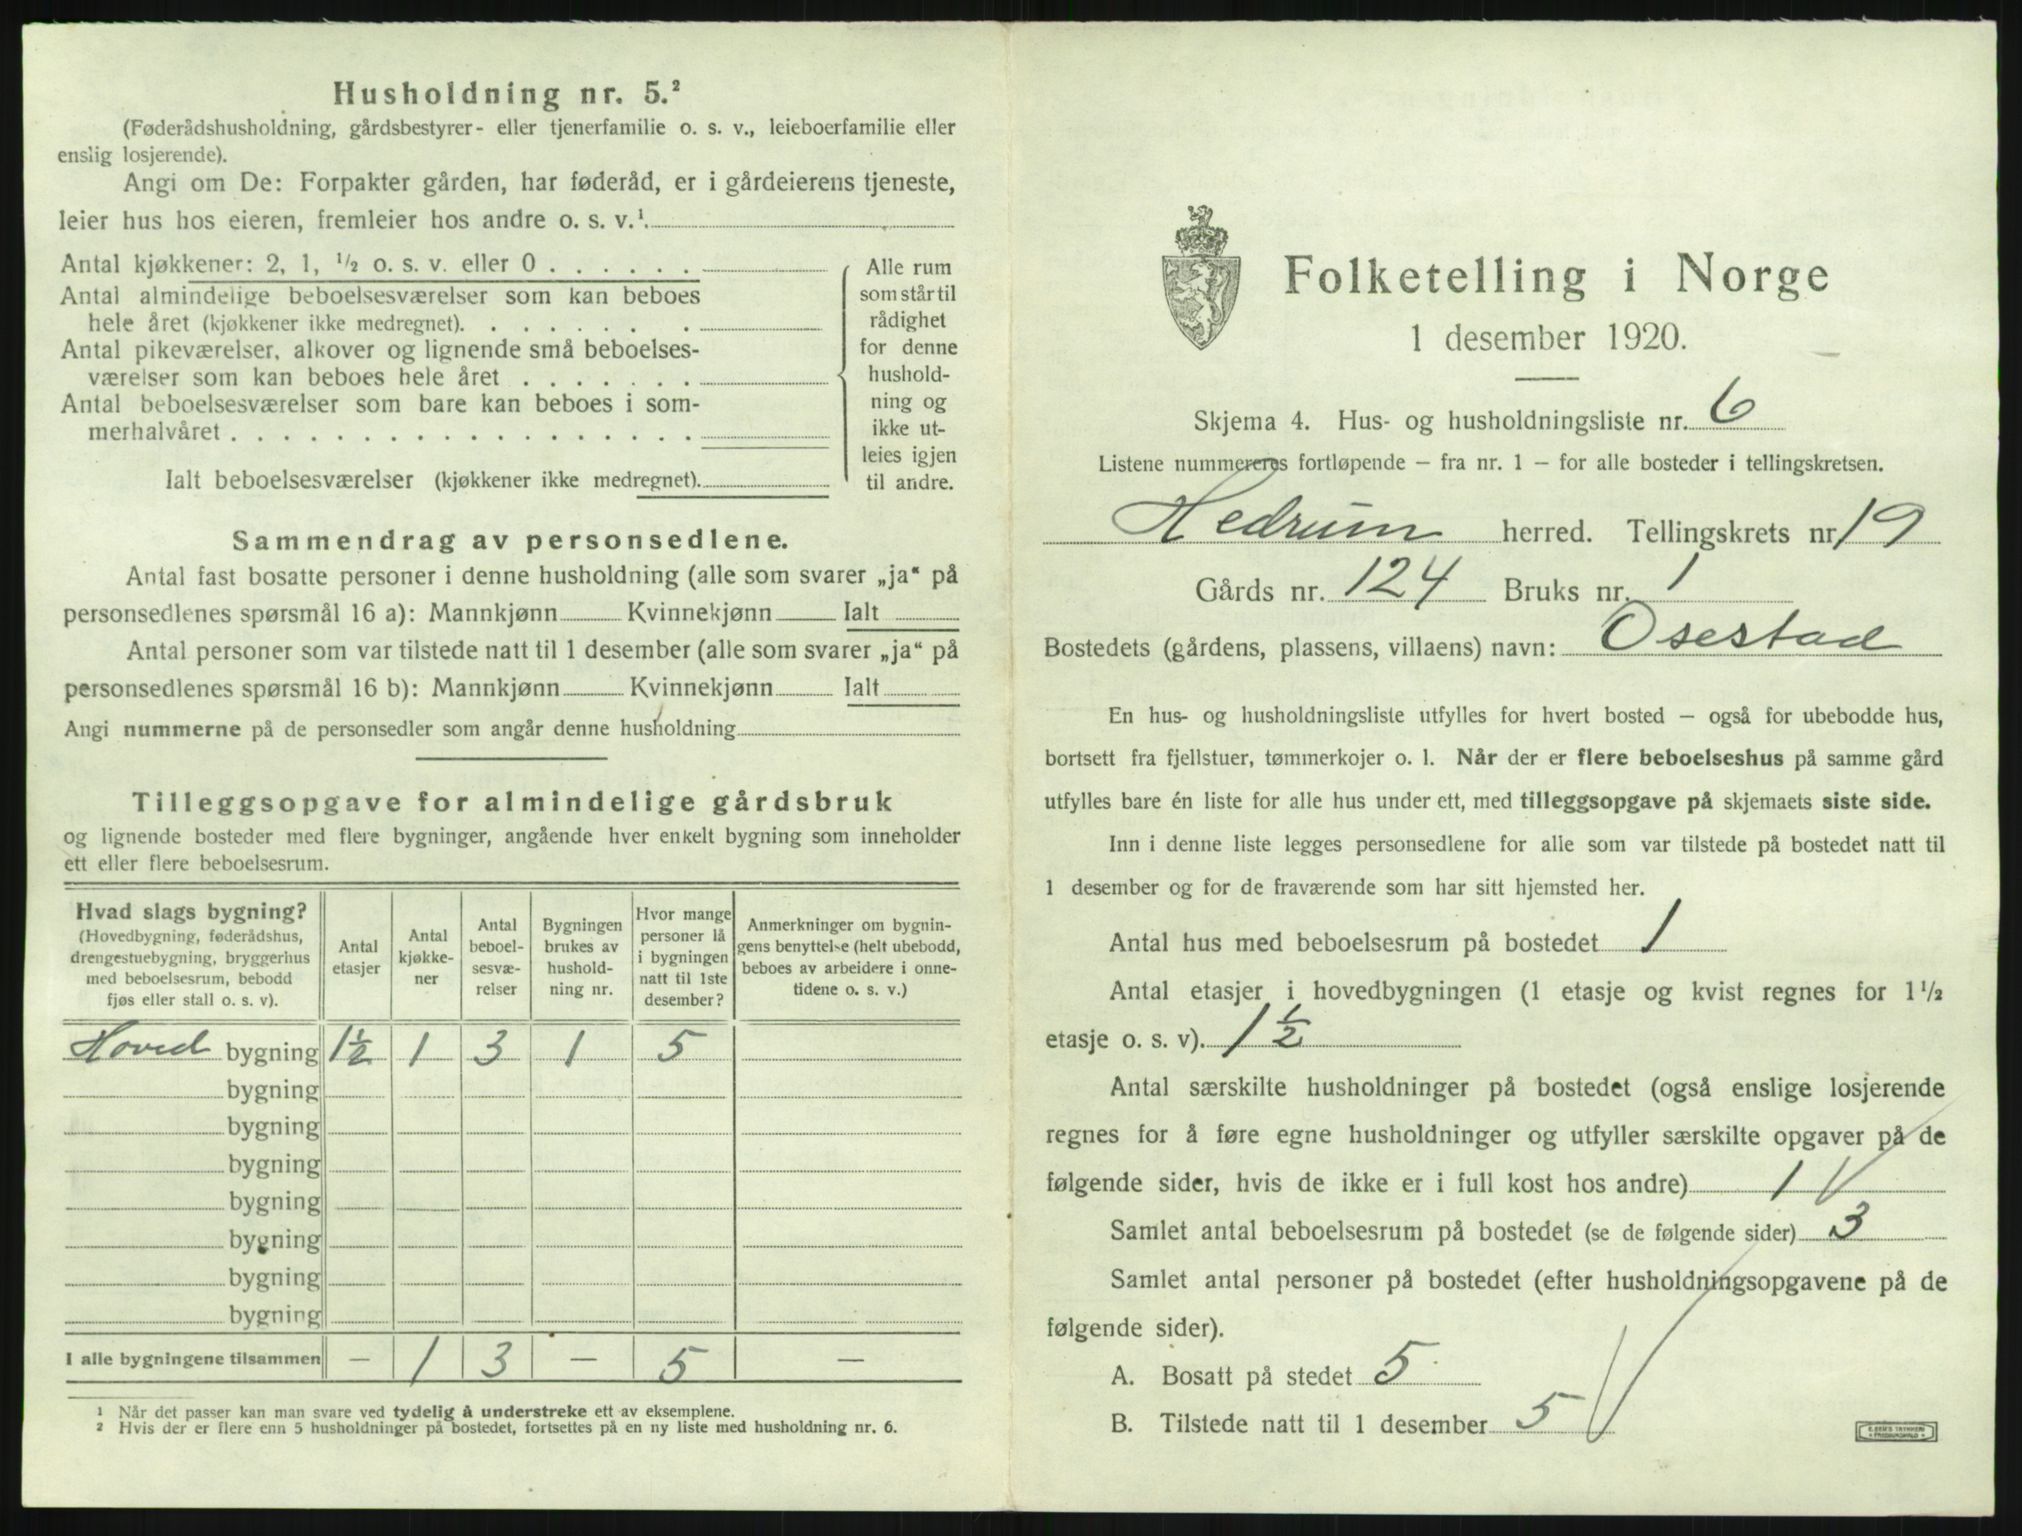 Husholdning nr. 5.²
(Føderådshusholdning, gårdsbestyrer- eller tjenerfamilie o. s. v., leieboerfamilie eller
enslig losjerende).
Angi om De: Forpakter gården, har føderåd, er i gårdeierens tjeneste,
leier hus hos eieren, fremleier hos andre o. s. v.¹.
Antal kjøkkener: 2, 1, ½ o. s. v. eller 0 . . . . . .
Antal almindelige beboelsesværelser som kan beboes
hele året (kjøkkener ikke medregnet). . . . . . . .
Antal pikeværelser, alkover og lignende små beboelses-
værelser som kan beboes hele året . . . . . . .
Antal beboelsesværelser som bare kan beboes i som-
merhalvåret . . . . . . . . . . . . . . . . . .
Ialt beboelsesværelser (kjøkkener ikke medregnet).
Alle rum
som står til
rådighet
for denne
hushold-
ning og
ikke ut-
leies igjen
til andre.
Sammendrag av personsedlene.
Antal fast bosatte personer i denne husholdning (alle som svarer „ja“ på
personsedlenes spørsmål 16 a): Mannkjønn Kvinnekjønn Ialt
Antal personer som var tilstede natt til 1 desember (alle som svarer „ja“ på
personsedlenes spørsmål 16 b): Mannkjønn Kvinnekjønn Ialt
Angi nummerne på de personsedler som angår denne husholdning
Tilleggsopgave for almindelige gårdsbruk
og lignende bosteder med flere bygninger, angående hver enkelt bygning som inneholder
ett eller flere beboelsesrum.
Hvad slags bygning?
(Hovedbygning, føderådshus,
drengestuebygning, bryggerhus
med beboelsesrum, bebodd
fjøs eller stall o. s. v).
Antal
etasjer
Antal
kjøkke-
ner
Antal
beboel-
sesvæ-
relser
Bygningen
brukes av
hushold-
ning nr.
Hvor mange
personer lå
i bygningen
natt til 1ste
desember?
Anmerkninger om bygnin-
gens benyttelse (helt ubebodd,
beboes av arbeidere i onne-
tidene o. s. v.)
Hoved bygning 1½ 1 3 1 5
bygning
bygning
bygning
bygning
bygning
bygning
bygning
I alle bygningene tilsammen — 1 3 — 5 —
¹ Når det passer kan man svare ved tydelig å understreke ett av eksemplene.
² Hvis der er flere enn 5 husholdninger på bostedet, fortsettes på en ny liste med husholdning nr. 6.
Folketelling i Norge
1 desember 1920.
Skjema 4. Hus- og husholdningsliste nr. 6
Listene nummereres fortløpende – fra nr. 1 – for alle bosteder i tellingskretsen.
Hedrum herred. Tellingskrets nr 19
Gårds nr. 124 Bruks nr. 1
Bostedets (gårdens, plassens, villaens) navn: Osestad
En hus- og husholdningsliste utfylles for hvert bosted – også for ubebodde hus,
bortsett fra fjellstuer, tømmerkojer o. l. Når der er flere beboelseshus på samme gård
utfylles bare én liste for alle hus under ett, med tilleggsopgave på skjemaets siste side.
Inn i denne liste legges personsedlene for alle som var tilstede på bostedet natt til
1 desember og for de fraværende som har sitt hjemsted her.
Antal hus med beboelsesrum på bostedet 1
Antal etasjer i hovedbygningen (1 etasje og kvist regnes for 1½
etasje o. s. v). 1½
Antal særskilte husholdninger på bostedet (også enslige losjerende
regnes for å føre egne husholdninger og utfyller særskilte opgaver på de
følgende sider, hvis de ikke er i full kost hos andre) 1
Samlet antal beboelsesrum på bostedet (se de følgende sider) 3
Samlet antal personer på bostedet (efter husholdningsopgavene på de
følgende sider).
A. Bosatt på stedet 5
B. Tilstede natt til 1 desember 5